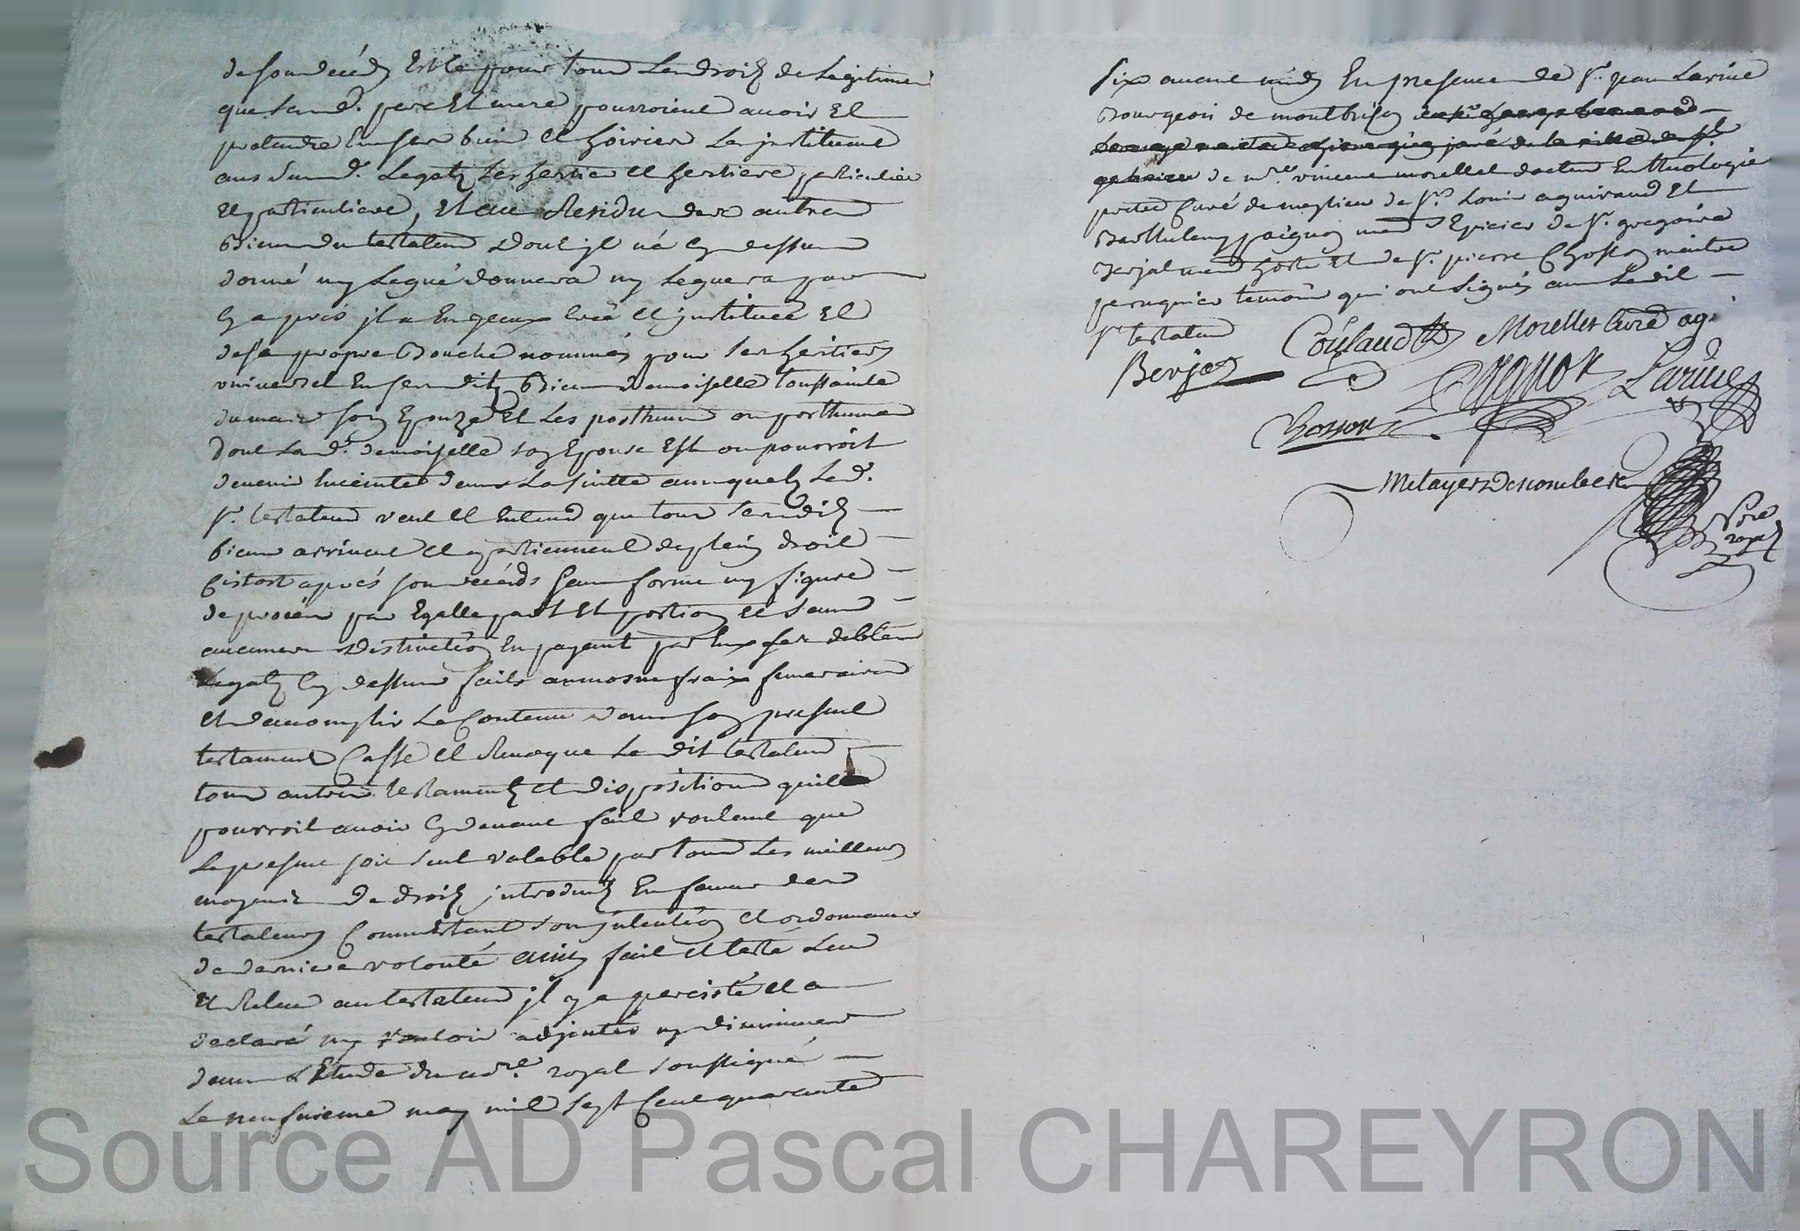 de son decéds Et ce pour tous Les droits de Legitime
que Lesd. pere Et mere pourroient avoir Et
pretendre En ses biens Et hoiries Les jnstituent
aus dittes Legats Ses heritiers Et heritiere particuliers
Et particuliere, Et au Residu de ses autres
Biens du testateur Dont jl n'a Cy dessus
donné ny Legué donnera ny Leguera par
Cy apres jl a fait Creé Et jnstitué Et
de sa propre Bouche nommés pour Ses heritiers
universel En ses dits Biens demoiselle toussainte
dumais Son Epouze Et Les posthume ou posthumes
Dont La d. demoiselle son Epouse Est ou pourroit
devenir Enceinte dans La suitte auxquels Led.
Sr. testateur veut Et Entend que tous Sesdits
biens arrivent Et apartiennent de plein droit
Cistost aprés son decéds Sans forme ny figure
de procéz par Egalle part Et portion Et Sans
aucunes Distinction En payant par Eux Ses debtes
Legats Cy dessus faits aumosne fraix funeraires
Et d'accomplir Le Contenu dans son present
testament Casse Et Revoque Le dit testateur
tous autres testaments Et dispositions qu'il
pourroit avoir Cy devant fait voulant que
Le present soit Seul valable par tous Les meilleurs
moyens De droits jntroduits En faveur des
testateurs Comme Etant Son jntention Et ordonnance
de derniere volonté ainsy fait Et testé Leu
Et Releu au testateur jl y a percisté Et a
declaré ny vouloir adjouter ny diminuer
dans L'Etude du nore. royal soussigné
Le neufvieme may mil Sept Cent quarante
Six avant midy En presence de Sr. jean Larive
Bourgeois de montbrison
de Mre. vincent morellet docteur En theologie
pretre Curé de Sr. Louis aguiraud Et
Barthelemy paignon mard Epicier de Sr. gregoire
Berjal mard hoste Et de Sr. pierre Chosson maitre
peruquier temoins qui ont Signés avec Ledit
Sr testateur
Coulaud Morellet Curé
Berjal Pagnon Larive
Chosson
Metayer Descombes
Nore
royal